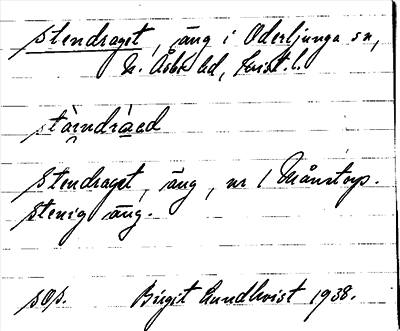 Stendraget, äng i Oderljunga sn,
N. Åsbo hd, Krist. l.
stàrndràed
Stendraget, äng, nr 1 Månstorp.
Stenig äng.
sOp. Birgit Lundkvist 1938.